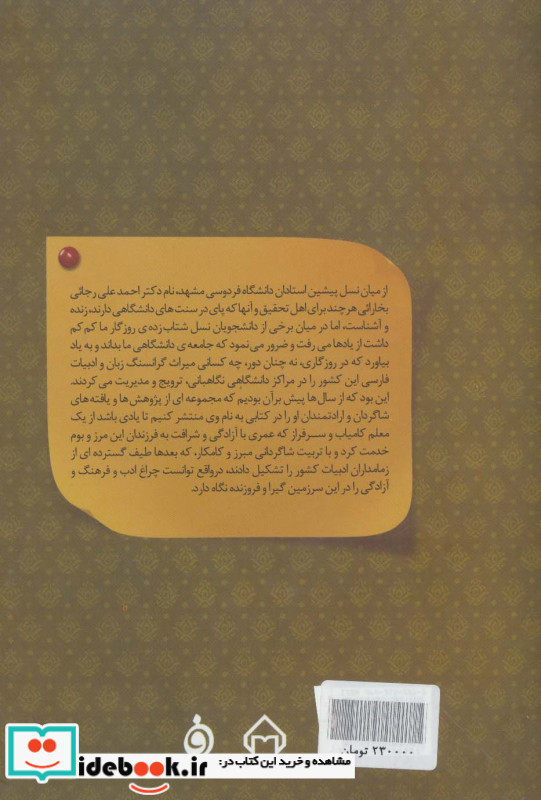 از میان نسل پیشین استادان دانشگاه فردوسی مشهد، نام دکتر احمد علی رجائی
بخارائی هر چند برای اهل تحقیق و آنها که پای در سنت های دانشگاهی دارند، زنده
و آشناست، اما در میان برخی از دانشجویان نسل شتاب زده ی روزگار ما کم کم
داشت از یادها می رفت و ضرور می نمود که جامعه ی دانشگاهی ما بداند و به یاد
بیاورد که در روزگاری، نه چنان دور، چه کسانی میراث گرانسنگ زبان و ادبیات
فارسی این کشور را در مراکز دانشگاهی نگاهبانی، ترویج و مدیریت می کردند.
این بود که از سال ها پیش بر آن بودیم که مجموعه ای از پژوهش ها و یافته های
شاگردان و ارادتمندان او را در کتابی به نام وی منتشر کنیم تا یادی باشد از یک
معلم کامیاب و سرفراز که عمری با آزادگی و شرافت به فرزندان این مرز و بوم
خدمت کرد و با تربیت شاگردانی مبرز و کامکار، که بعدها طیف گسترده ای از
زمامداران ادبیات کشور را تشکیل دادند، درواقع توانست چراغ ادب و فرهنگ و
آزادگی را در این سرزمین گیرا و فروزنده نگاه دارد.
۲۳۰۰۰۰ تومان
مشاهده و خرید این کتاب در:
idebook.ir